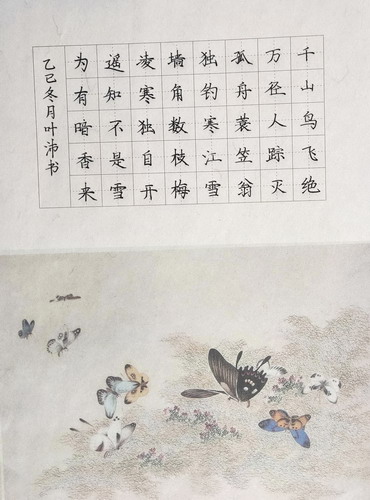 千山鸟飞绝
万径人踪灭
孤舟蓑笠翁
独钓寒江雪
墙角数枝梅
凌寒独自开
遥知不是雪
为有暗香来
乙巳冬月叶沛书